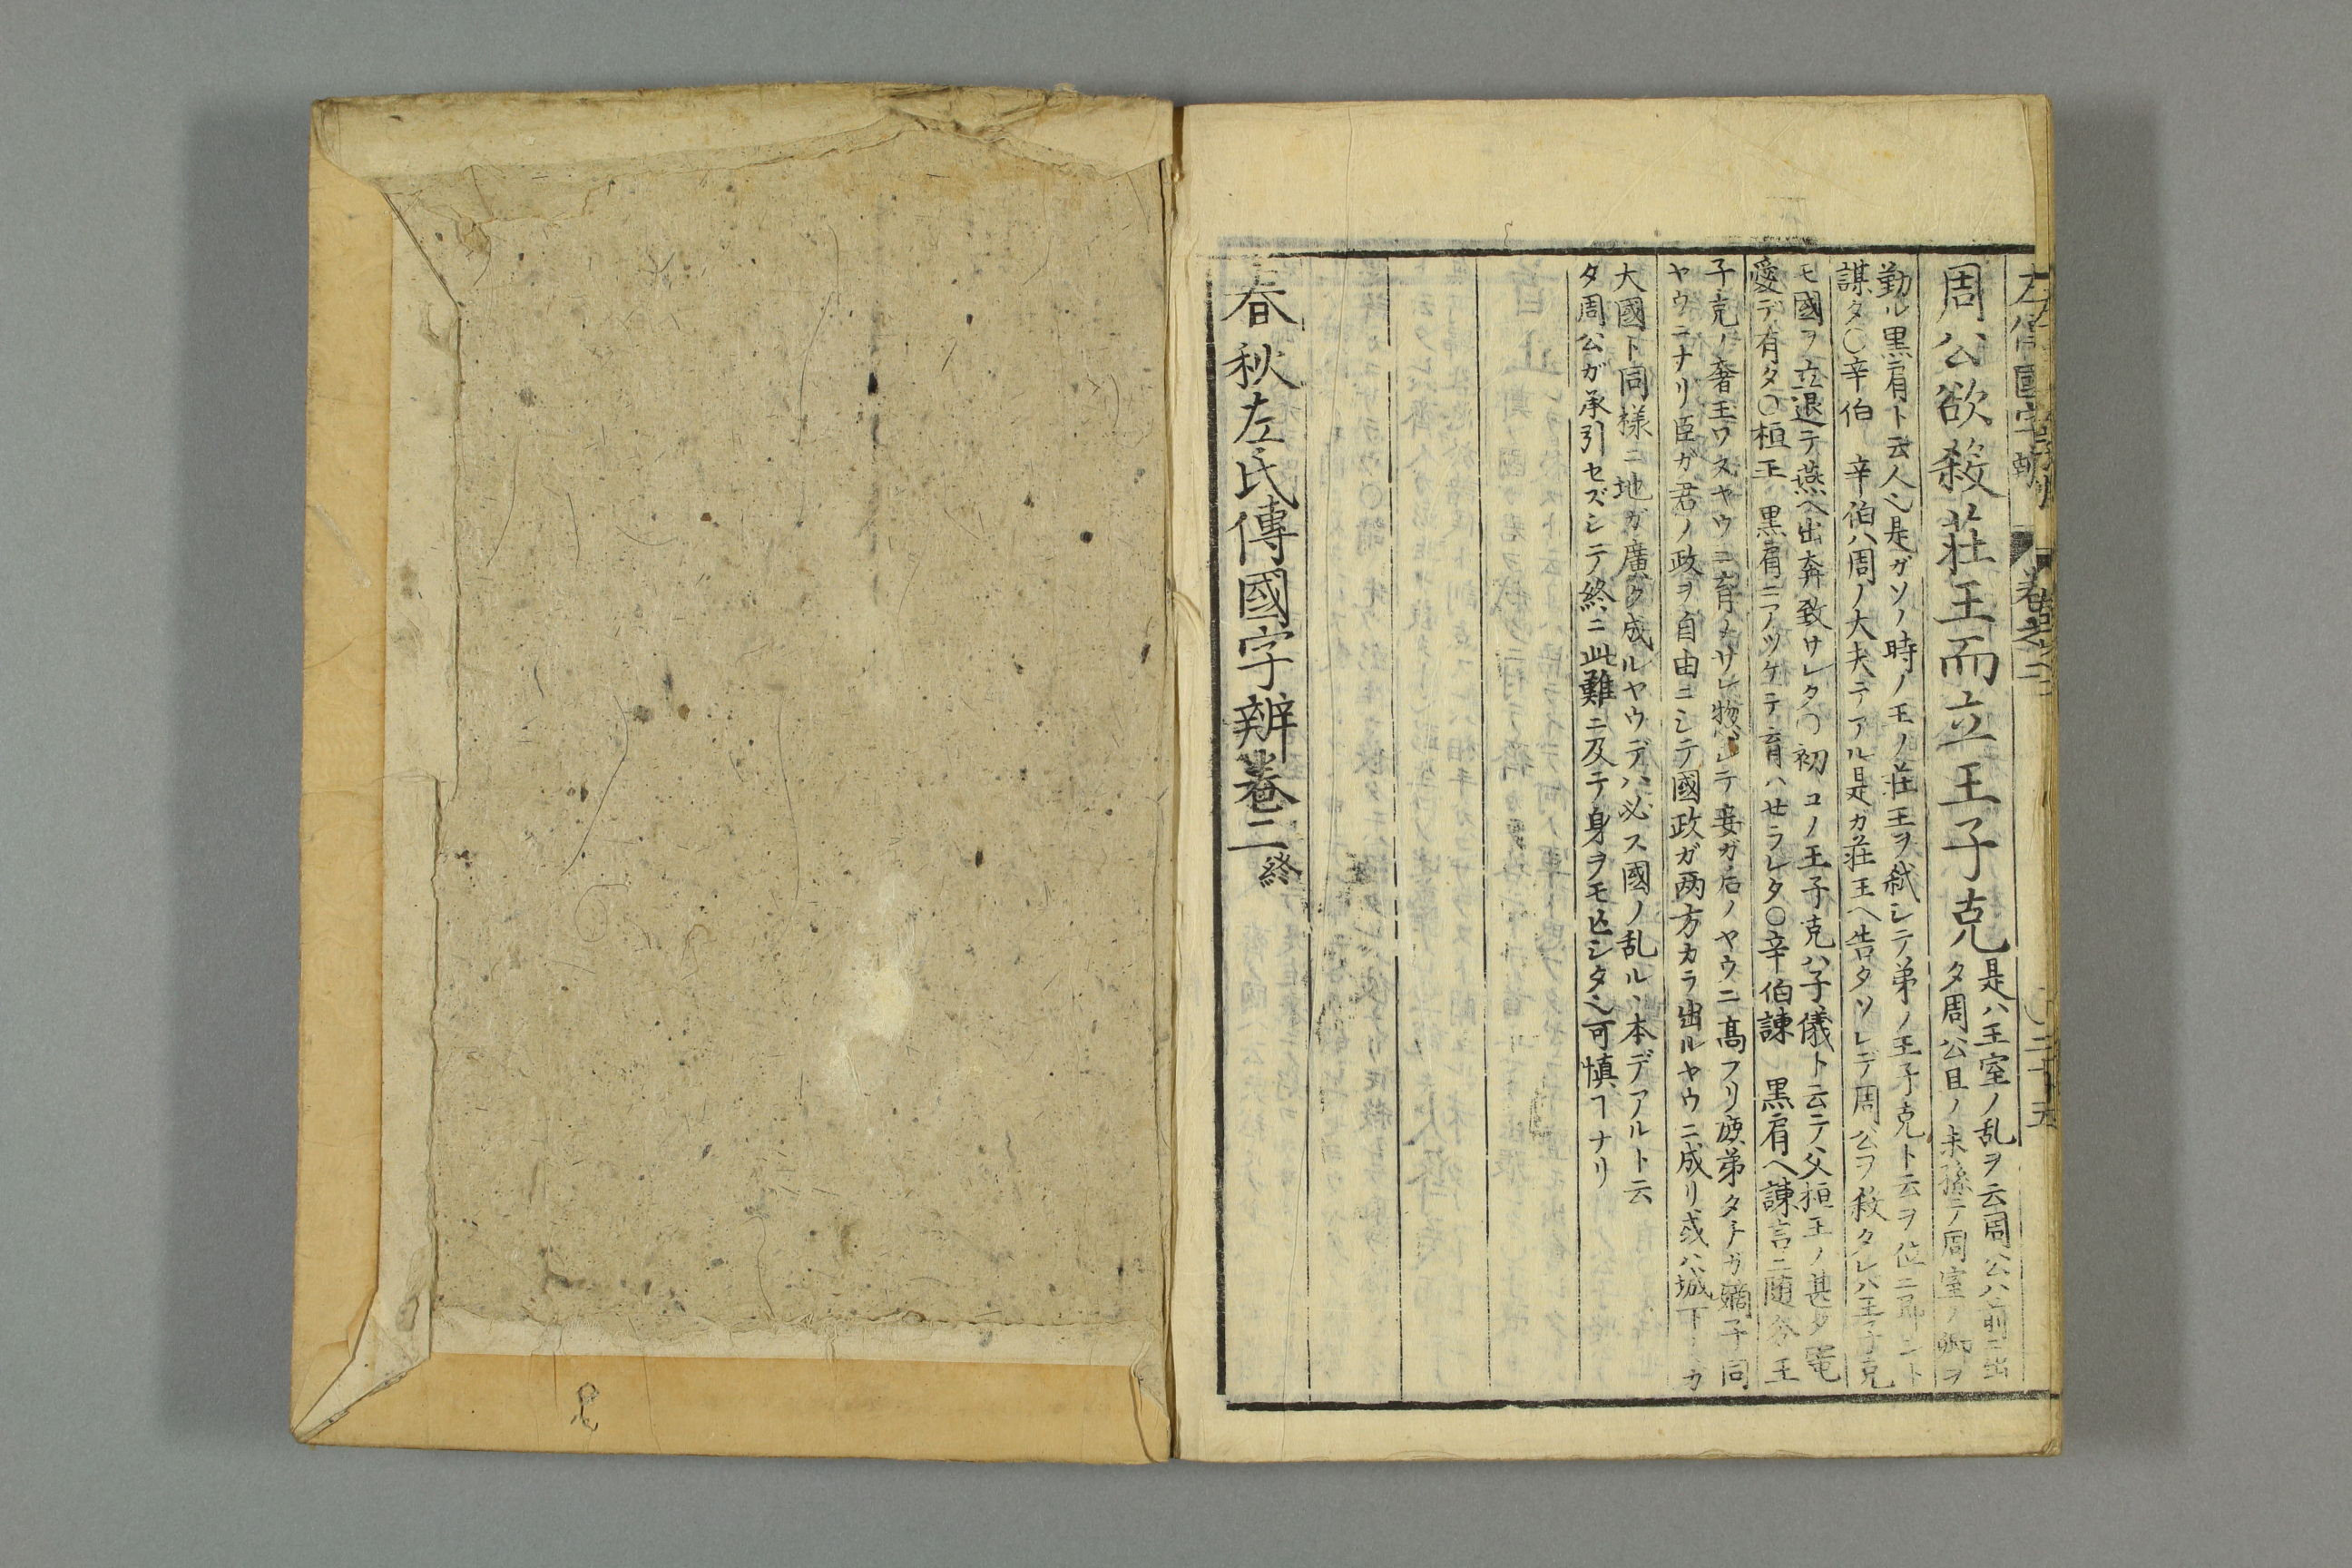 左傳國字辨 卷之二 二十五
周公欲殺莊王而立王子克
是ハ王室ノ乱ヲ云周公ハ前ニ出
タ周公且ノ末孫テ周室ノ卿ヲ
勤ル黒肩ト云人也是ガソノ時ノ王ノ莊王ヲ弑シテ弟ノ王子克ト云ヲ位ニ即ント
謀タ〇辛伯 辛伯ハ周ノ大夫テアル是ガ莊王ヘ告タソレデ周公ヲ殺タレハ王子克
モ國ヲ立退テ燕ヘ出奔致サレタ〇初 コノ王子克ハ子儀ト云テ父桓王ノ甚タ寵
愛デ有タ〇桓王 黒肩ニアツケテ育ハセラレタ〇辛伯諫 黒肩ヘ諫言ニ随分王
子克ノ奢玉ワヌヤウニ育メサレ惣シテ妾ガ后ノヤウニ髙フリ庶弟タチガ嫡子同
ヤウニナリ臣ガ君ノ政ヲ自由ニシテ國政ガ两方カラ出ルヤウニ成リ或ハ城下ナカ
大國ト同様ニ地ガ廣ク成ルヤウデハ必ス國ノ乱ル丶本デアルト云
タ周公ガ承引セズシテ終ニ此難ニ及テ身ヲモ亡シタ也可慎ヿナリ
春秋左氏傳國字辨卷二終